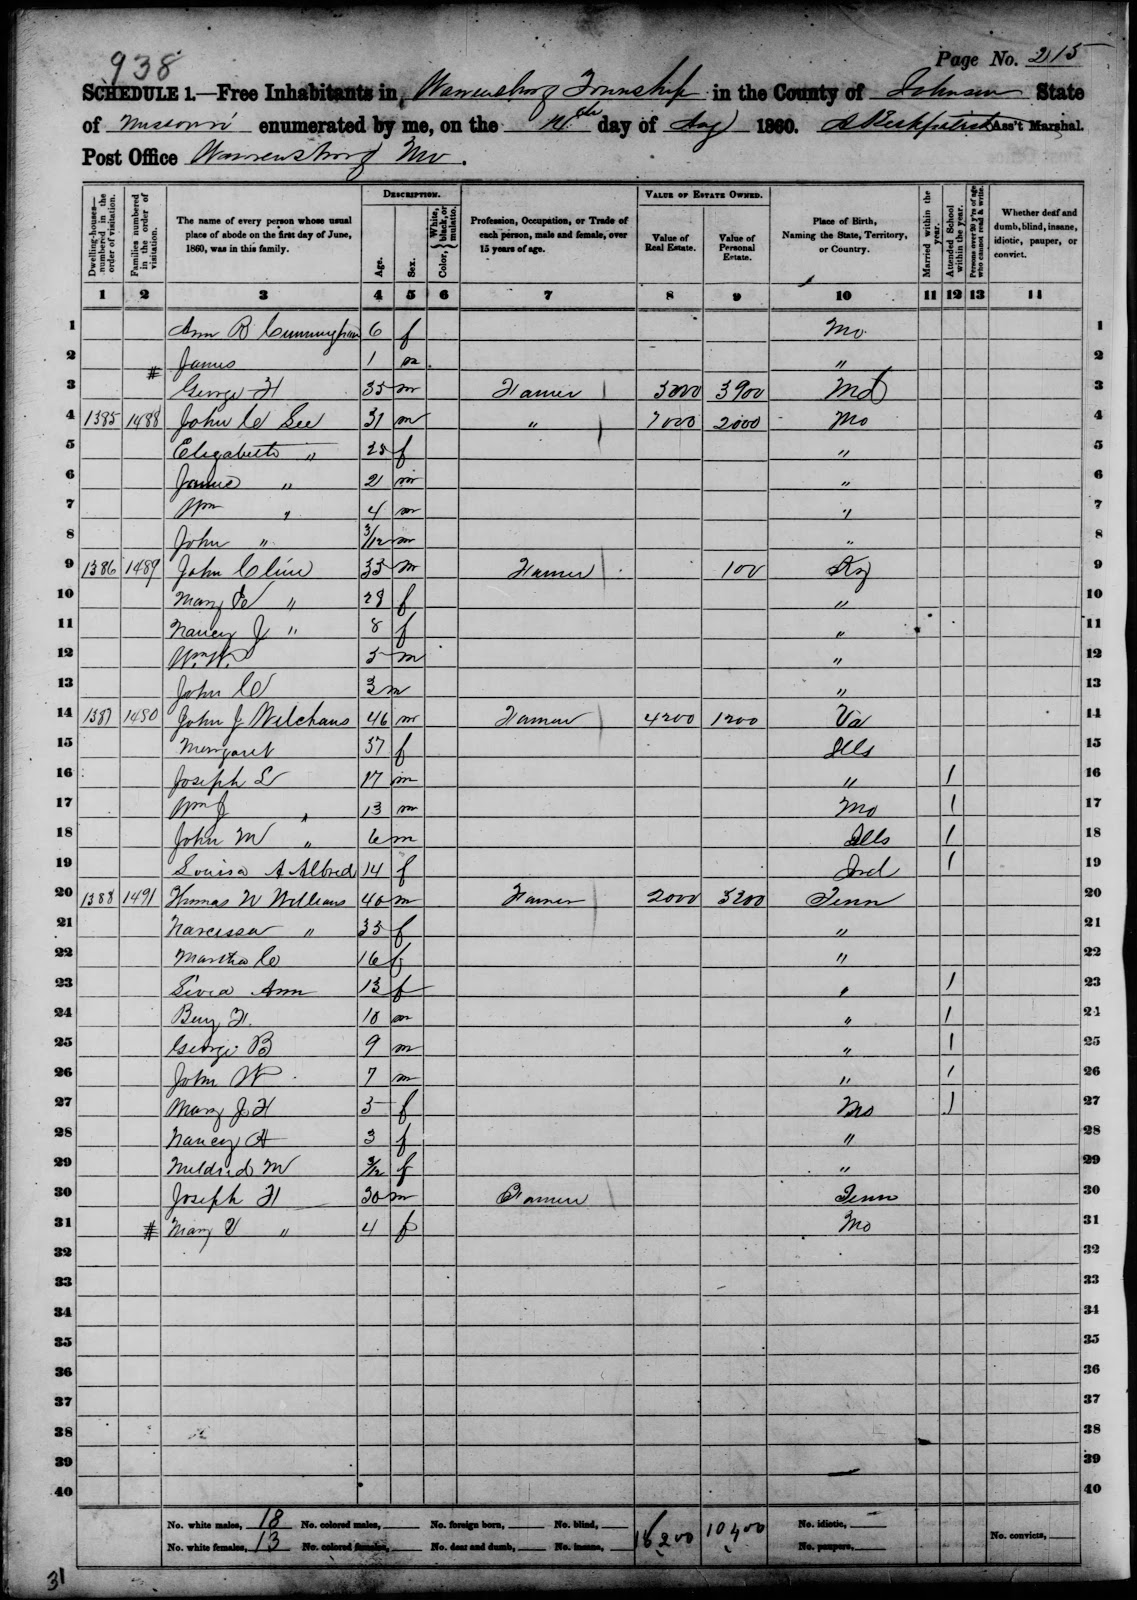 938
Page No. 215
SCHEDULE 1.—Free Inhabitants in Warrensburg Township in the County of Johnson State
of Missouri enumerated by me, on the day of Aug 1860. Ass't Marshal.
Post Office Warrensburg Mo.
Dwelling-houses—numbered in the order of visitation.
Families numbered in the order of visitation.
The name of every person whose usual place of abode on the first day of June, 1860, was in this family.
DESCRIPTION.
Age.
Sex.
Color, { White, black, or mulatto.
Profession, Occupation, or Trade of each person, male and female, over 15 years of age.
VALUE OF ESTATE OWNED.
Value of Real Estate.
Value of Personal Estate.
Place of Birth, Naming the State, Territory, or Country.
Married within the year.
Attended School within the year.
Persons over 20 y'rs of age who cannot read & write.
Whether deaf and dumb, blind, insane, idiotic, pauper, or convict.
1 2 3 4 5 6 7 8 9 10 11 12 13 14
1 Ann B Cunningham 6 f Mo 1
2 James 1 m " 2
3 # George H 35 m Farmer 3900 Md 3
4 1385 1488 John C Lee 31 m " 7000 2000 Mo 4
5 Elizabeth " 25 f " 5
6 James " 21 m " 6
7 Wm " 4 m " 7
8 John " 3/12 m " 8
9 1386 1489 John Cline 35 m Farmer 100 Ky 9
10 Mary E " 28 f " 10
11 Nancy J " 8 f " 11
12 Wm W. 5 m " 12
13 John C 3 m " 13
14 1387 1490 John J Welchans 46 m Farmer 4200 1200 Va 14
15 Margaret 37 f Ills 15
16 Joseph L 17 m " 1 16
17 Wm J " 13 m Mo 1 17
18 John M " 6 m Ills 1 18
19 Louisa A Albred 14 f Ind 1 19
20 1388 1491 Thomas W Williams 40 m Farmer 2000 3200 Tenn 20
21 Narcissa " 35 f " 21
22 Martha C 16 f " 22
23 Ann 13 f " 1 23
24 Benj H. 10 m " 1 24
25 George B 9 m " 1 25
26 John W 7 m " 1 26
27 Mary J H 5 f Mo 1 27
28 Nancy A 3 f " 28
29 Mildred M 3/12 f " 29
30 Joseph H 30 m Farmer Tenn 30
31 # Mary V " 4 f Mo 31
32 32
33 33
34 34
35 35
36 36
37 37
38 38
39 39
40 40
No. white males, 18 No. colored males, No. foreign born, No. blind, 18200 10400 No. idiotic,
No. white females, 13 No. colored females, No. deaf and dumb, No. insane, No. paupers, No. convicts,
31